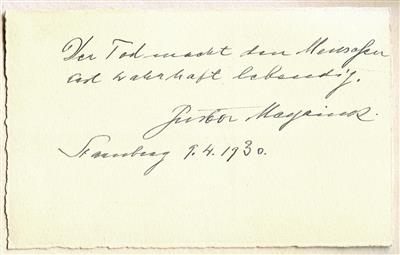 Der Tod macht den Menschen
erst wahrhaft lebendig.
Gustav Meyrink.
Starnberg 9.4.1930.